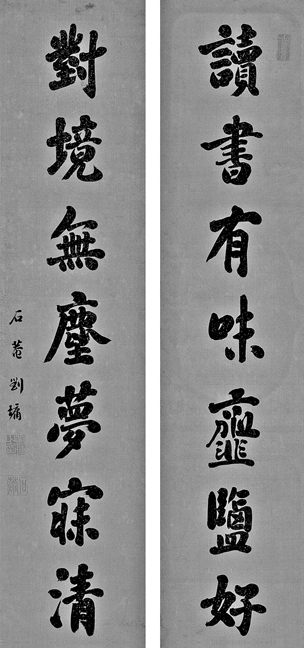 讀書有味虀鹽好
對境無塵夢寐清
石菴劉墉